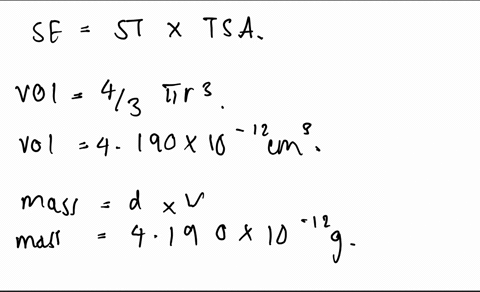 SE = ST × TSA.
Vol = 4/3 πr³.
Vol = 4.190 × 10⁻¹² cm³.
mass = d × V
mass = 4.190 × 10⁻¹² g.